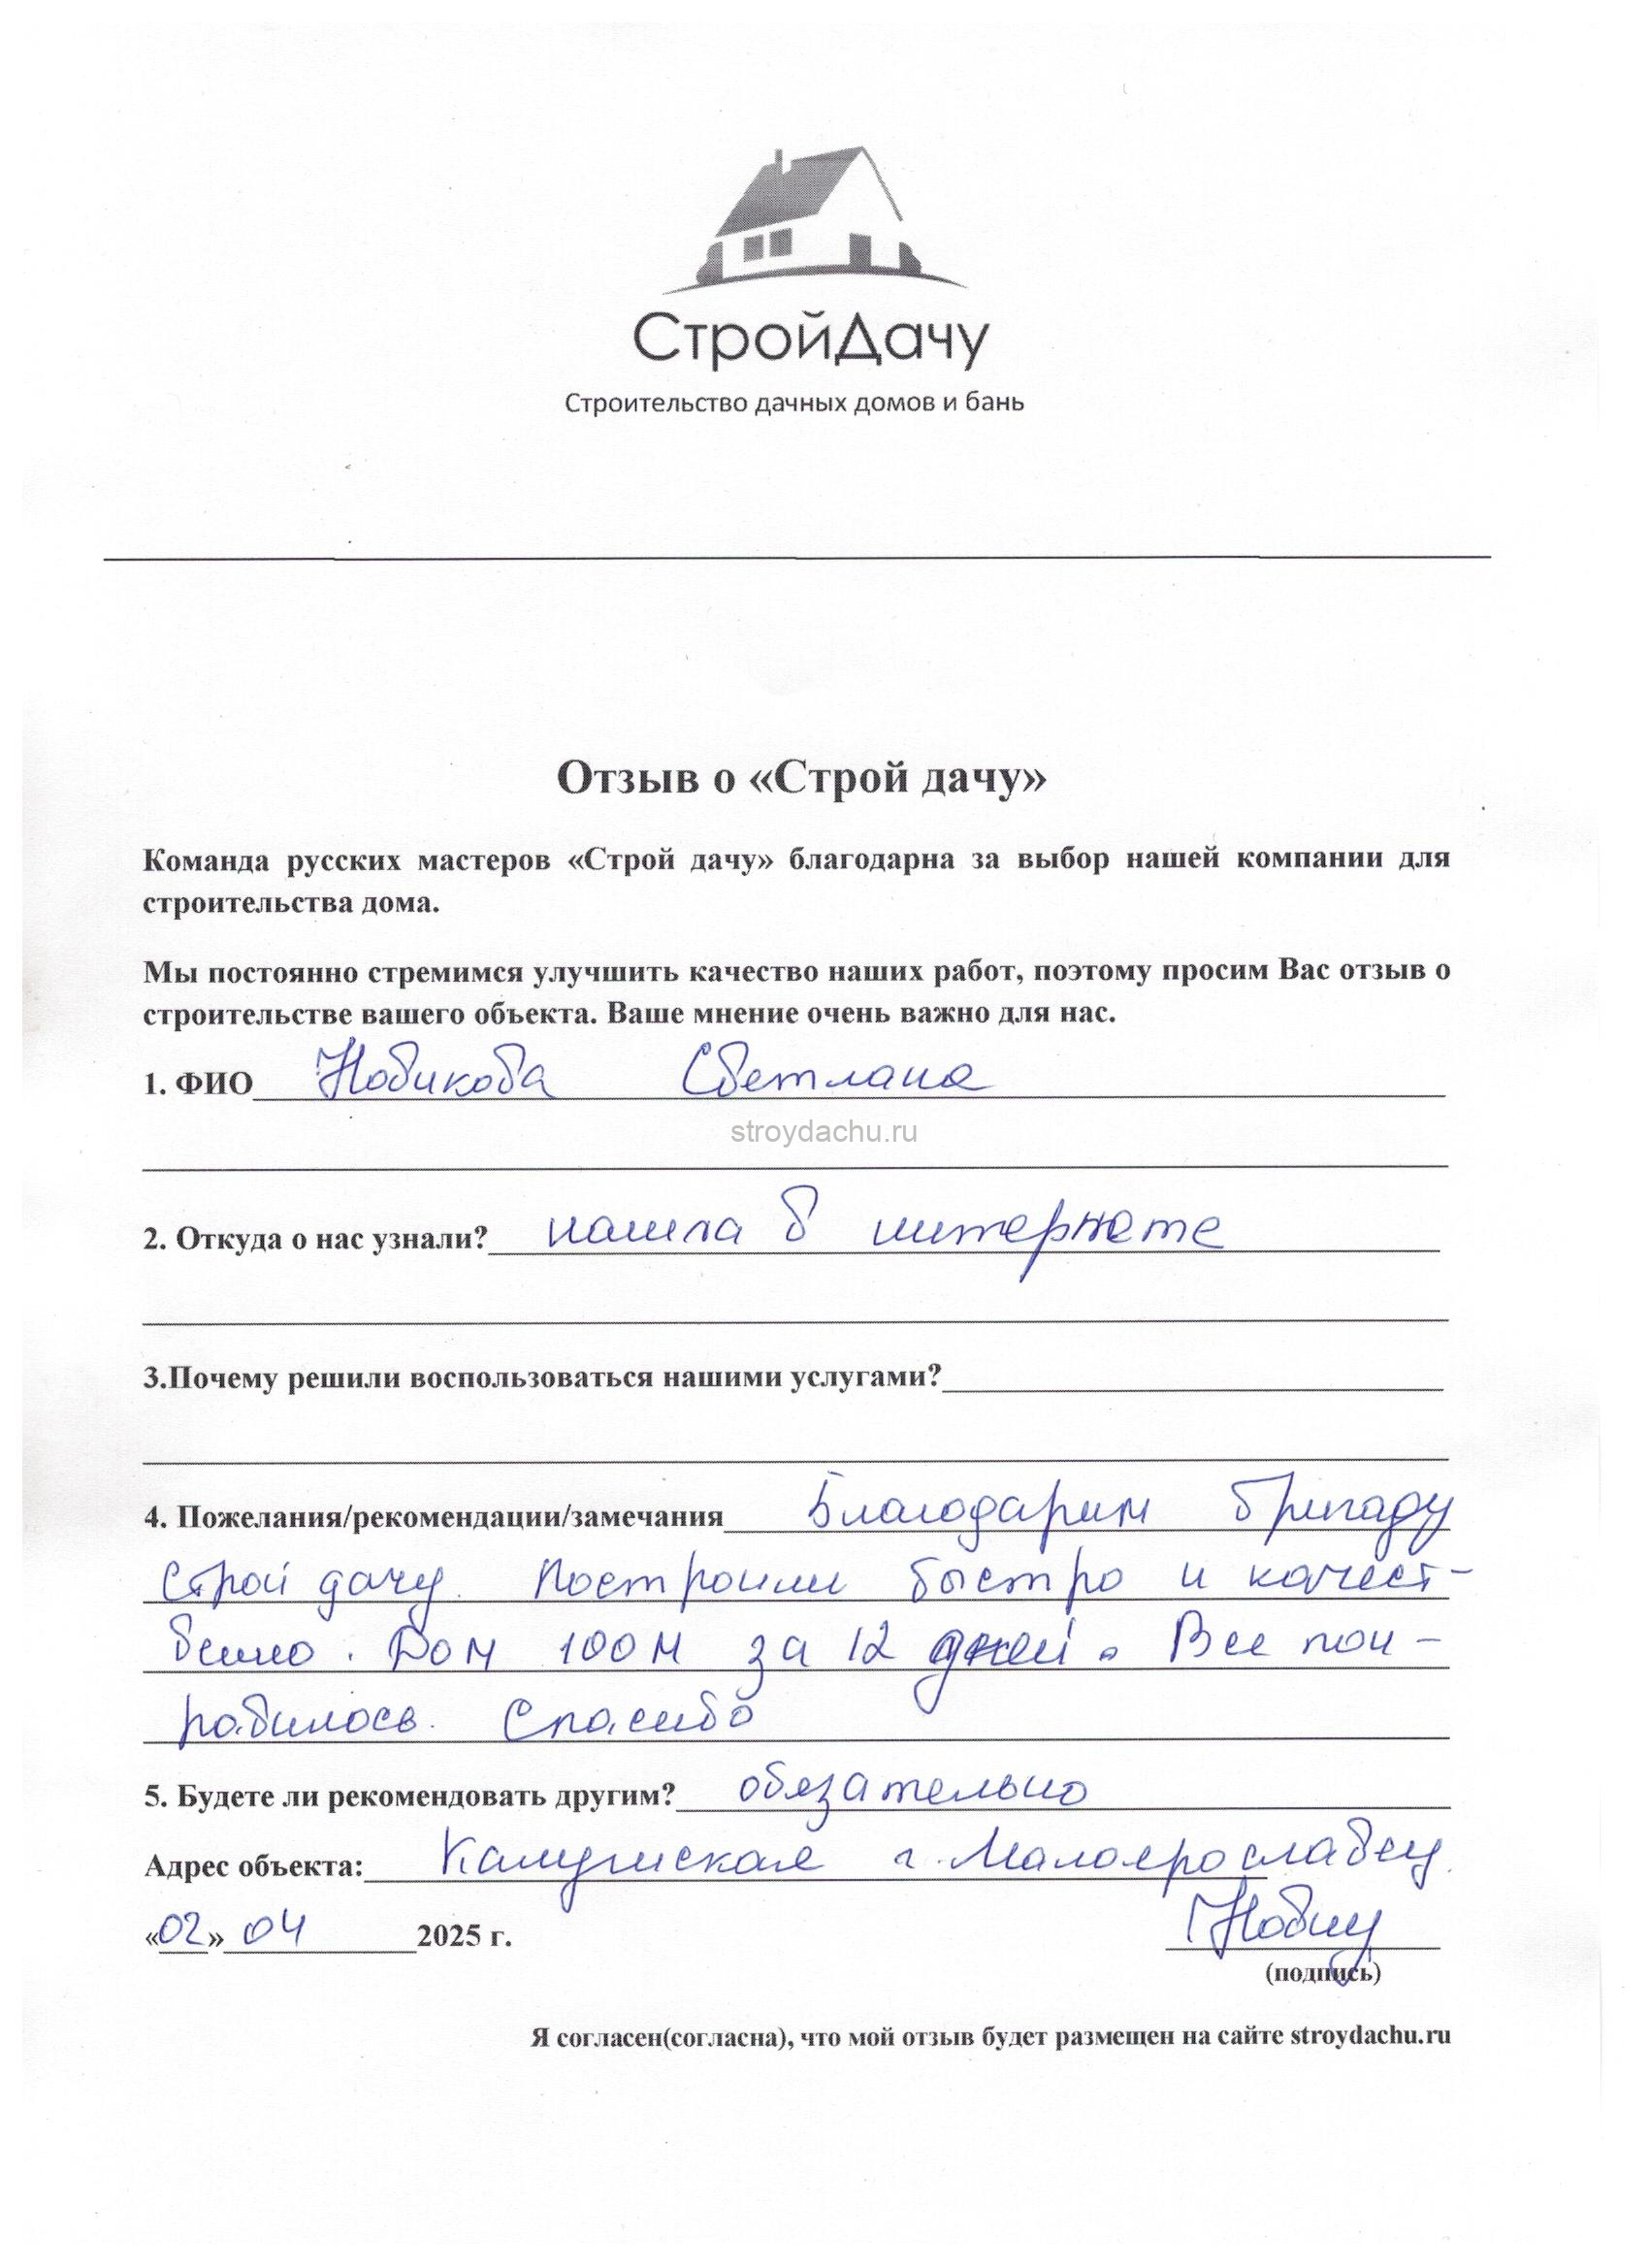 СтройДачу
Строительство дачных домов и бань
Отзыв о «Строй дачу»
Команда русских мастеров «Строй дачу» благодарна за выбор нашей компании для
строительства дома.
Мы постоянно стремимся улучшить качество наших работ, поэтому просим Вас отзыв о
строительстве вашего объекта. Ваше мнение очень важно для нас.
1. ФИО Новикова Светлана
stroydachu.ru
2. Откуда о нас узнали? нашла в интернете
3.Почему решили воспользоваться нашими услугами?
4. Пожелания/рекомендации/замечания Благодарим бригаду
Строй дачу. Построили быстро и качест-
венно. Дом 100м за 12 дней. Все пон-
равилось. Спасибо
5. Будете ли рекомендовать другим? обязательно
Адрес объекта: Калужская г. Малоярославец
«02» 04 2025 г.
(подпись)
Я согласен(согласна), что мой отзыв будет размещен на сайте stroydachu.ru